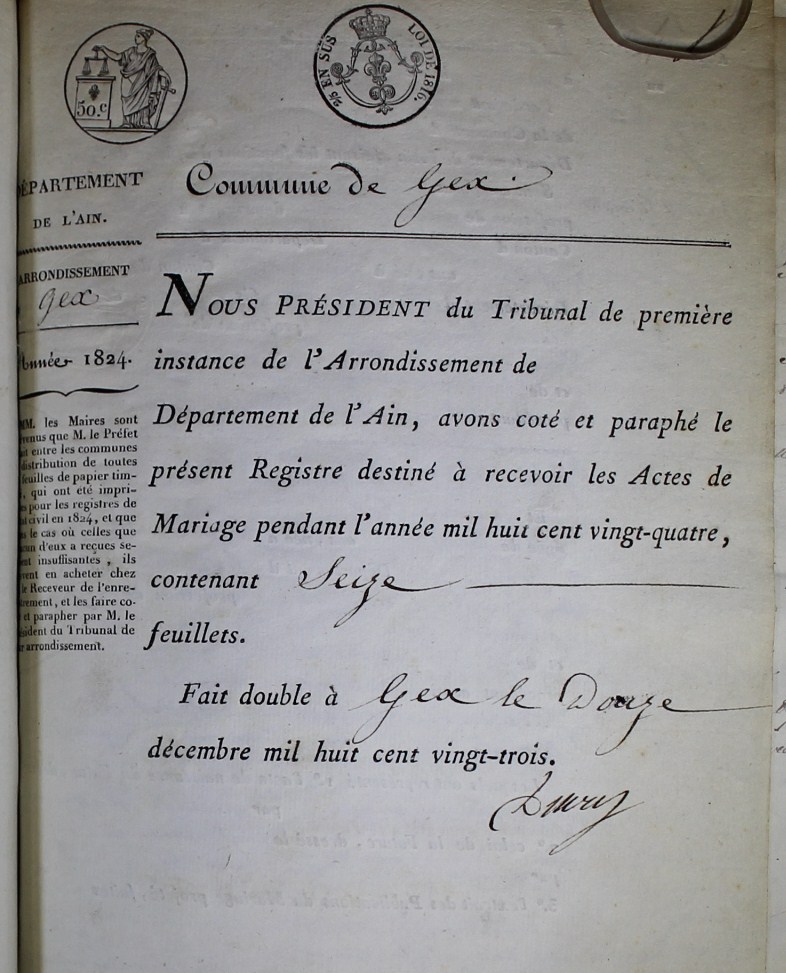 50.c
2/5 EN SUS
LOI DE 1816.
Commune de Gex.
DÉPARTEMENT
DE L'AIN.
ARRONDISSEMENT
Gex
Année 1824.
MM. les Maires sont
venus que M. le Préfet
entre les communes
distribution de toutes
feuilles de papier tim-
, qui ont été impri-
pour les registres de
civil en 1824, et que
le cas où celles que
d'eux a reçues se-
insuffisantes, ils
en acheter chez
le Receveur de l'enre-
, et les faire co-
et parapher par M. le
Président du Tribunal de
arrondissement.
NOUS PRÉSIDENT du Tribunal de première
instance de l'Arrondissement de
Département de l'Ain, avons coté et paraphé le
présent Registre destiné à recevoir les Actes de
Mariage pendant l'année mil huit cent vingt-quatre,
contenant Seize
feuillets.
Fait double à Gex le Douze
décembre mil huit cent vingt-trois.